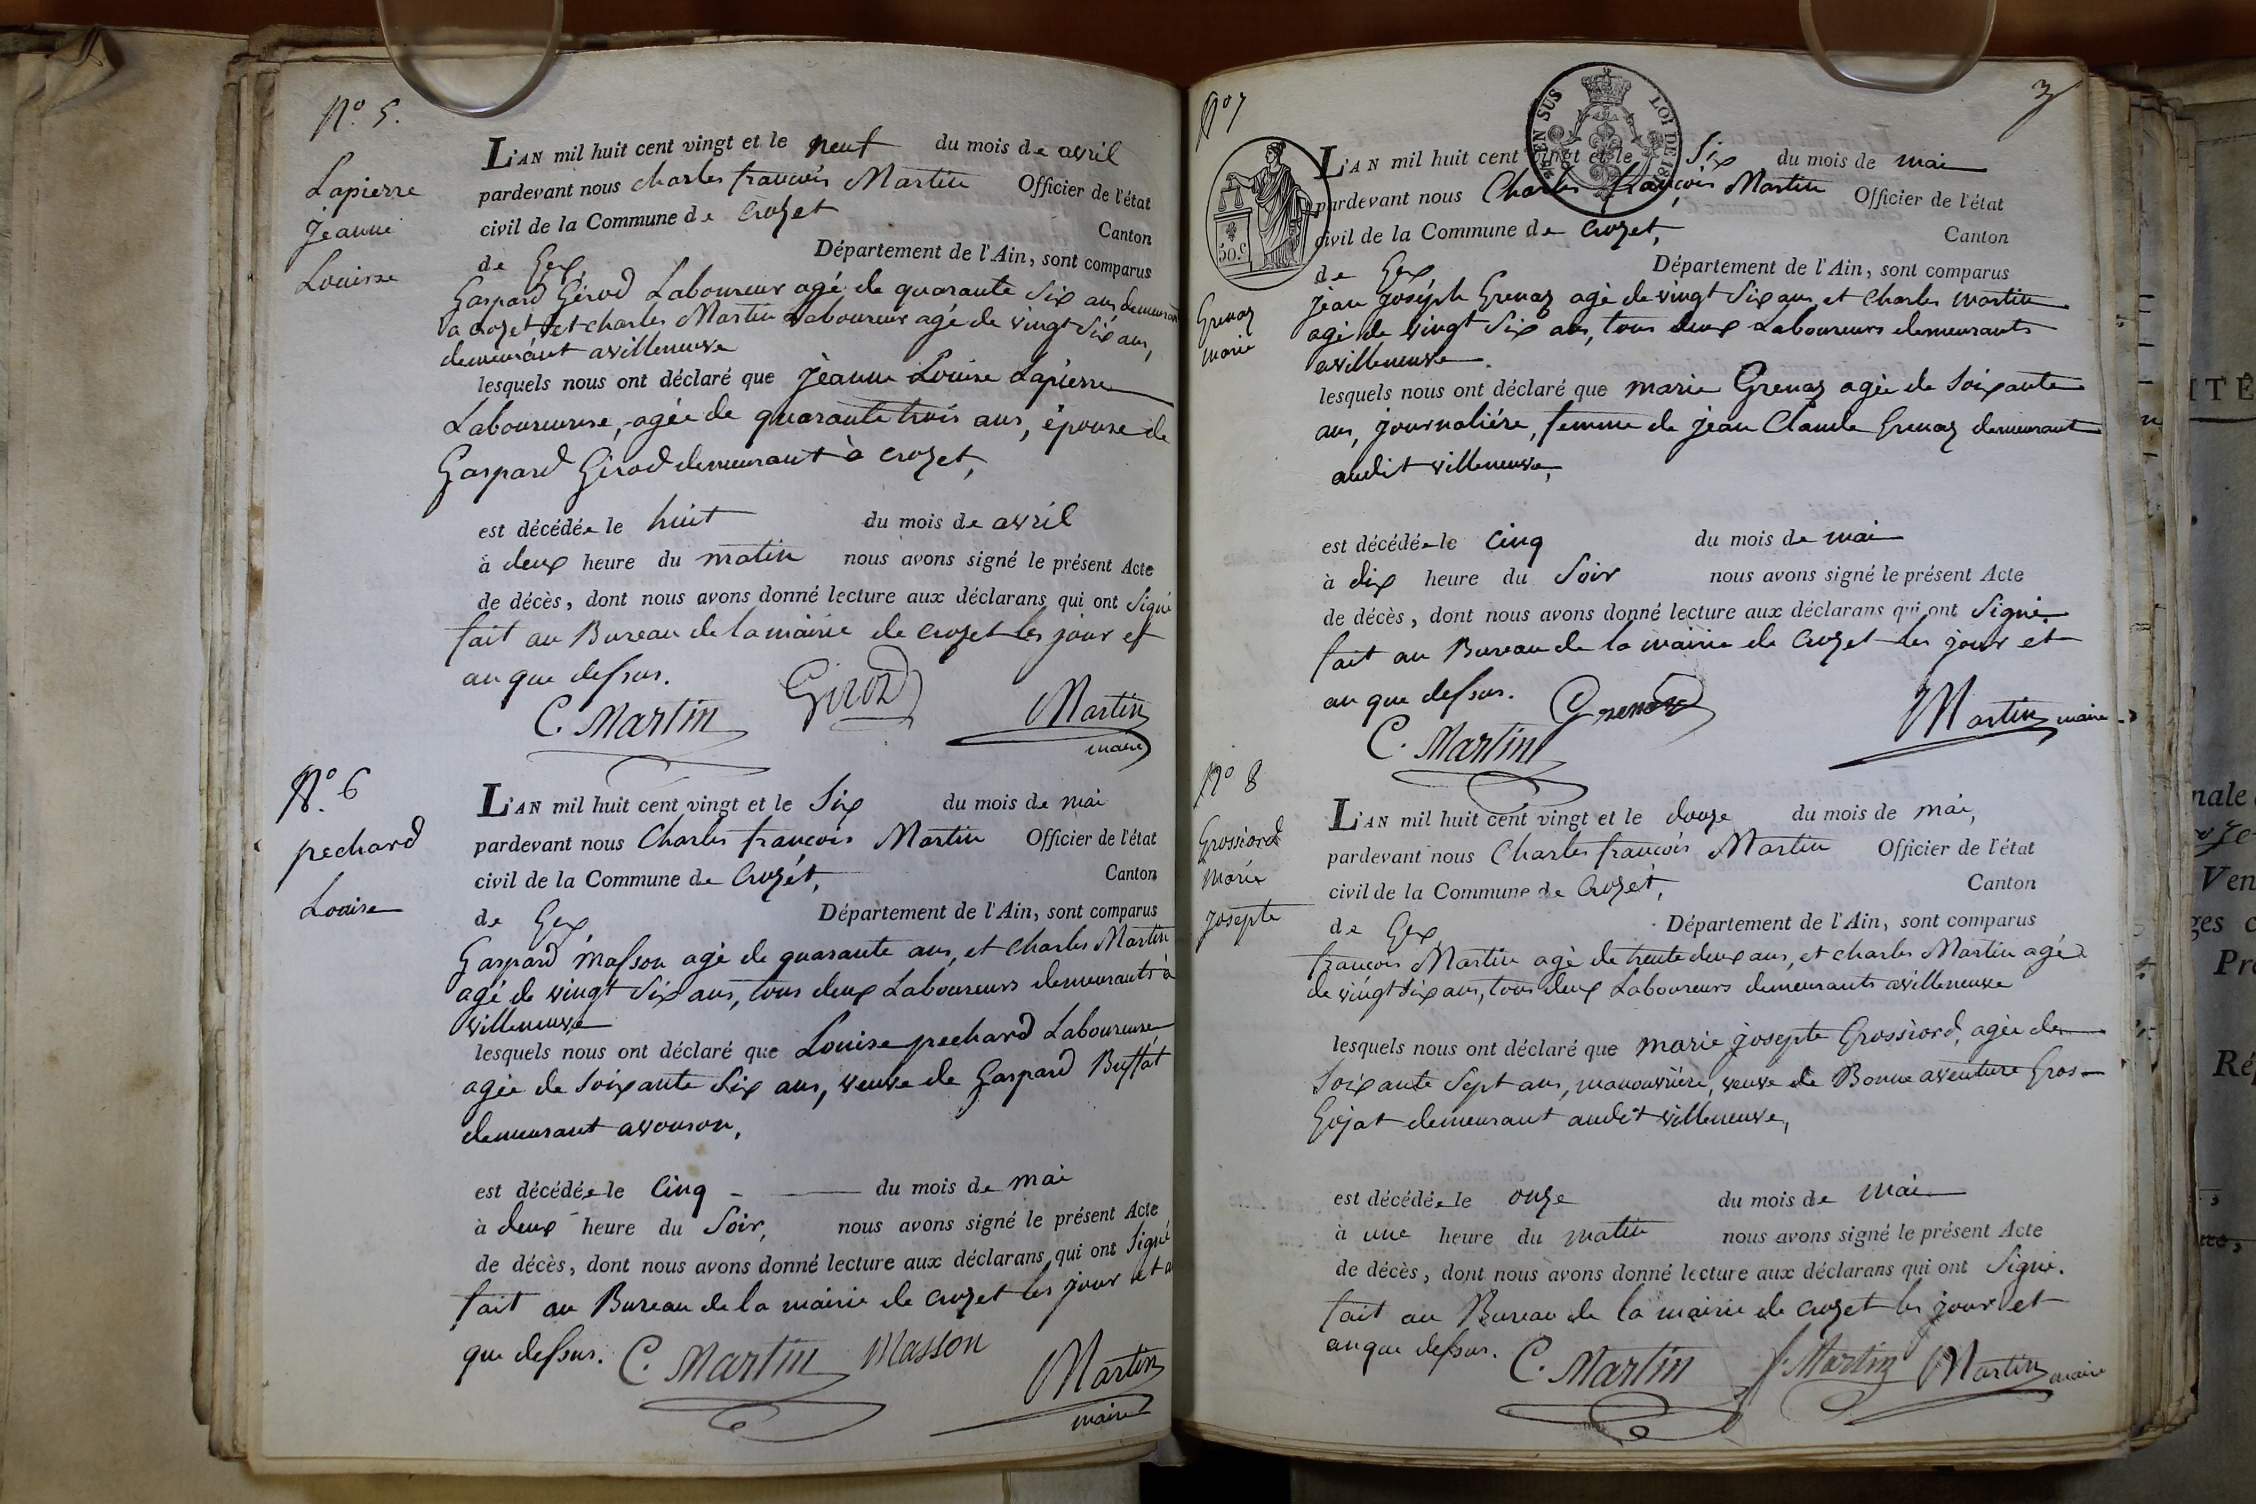 N.° 5.
Lapierre
jeanne
Louise
L'AN mil huit cent vingt et le neuf du mois de avril
pardevant nous charles francois Martin Officier de l'état
civil de la Commune de Crozet Canton
de Gex Département de l'Ain, sont comparus
Gaspard Girod Laboureur agé de quarante Six ans demeurant
a crozet et charles Martin Laboureur agé de vingt Six ans,
demeurant avilleneuve
lesquels nous ont déclaré que jeanne Louise Lapierre
Laboureuse, agée de quarante trois ans, épouse de
Gaspard Girod demeurant à crozet,
est décédée le huit du mois de avril
à deux heure du matin nous avons signé le présent Acte
de décès, dont nous avons donné lecture aux déclarans qui ont Signé
fait au Bureau de la mairie de crozet les jour et
an que dessus.
C. Martin Girod Martin
maire
N.° 6
pechard
Louise
L'AN mil huit cent vingt et le Six du mois de mai
pardevant nous Charles francois Martin Officier de l'état
civil de la Commune de Crozet, Canton
de Gex, Département de l'Ain, sont comparus
Gaspard Masson agé de quarante ans, et charles Martin
agé de vingt Six ans, tous deux Laboureurs demeurants à
villeneuve
lesquels nous ont déclaré que Louise pechard Laboureuse
agée de Soixante Six ans, veuve de Gaspard Buffat
demeurant avouson,
est décédée le Cinq du mois de mai
à deux heure du Soir, nous avons signé le présent Acte
de décès, dont nous avons donné lecture aux déclarans qui ont Signé
fait au Bureau de la mairie de crozet les jour et a
que dessus. C. Martin Masson Martin
maire
3
N° 7
EN SUS LOI DE 18
50.c
Grenaz
marie
L'AN mil huit cent vingt et le Six du mois de mai
pardevant nous Charles françois Martin Officier de l'état
civil de la Commune de Crozet, Canton
de Gex Département de l'Ain, sont comparus
jean joséph Grenaz agé de vingt Six ans, et Charles martin
agé de vingt Six ans, tous deux Laboureurs demeurants
avilleneuve
lesquels nous ont déclaré que marie Grenaz agée de Soixante
ans, journaliére, femme de jean Claude Grenaz demeurant
audit villeneuve,
est décédée le Cinq du mois de mai
à dix heure du Soir nous avons signé le présent Acte
de décès, dont nous avons donné lecture aux déclarans qui ont Signé.
fait au Bureau de la mairie de Crozet les jour et
an que dessus. Grenaz Martin maire
C. Martin
N° 8
Grossiord
Marie
josepte
L'AN mil huit cent vingt et le douze du mois de mai,
pardevant nous Charles françois Martin Officier de l'état
civil de la Commune de Crozet, Canton
de Gex Département de l'Ain, sont comparus
françois Martin agé de trente deux ans, et charles Martin agé
de vingt Six ans, tous deux Laboureurs demeurants avilleneuve
lesquels nous ont déclaré que marie josepte Grossiord, agée de
Soixante Sept ans, manouvrière, veuve de Bonneaventure Gros-
Gojat demeurant audit villeneuve,
est décédée le onze du mois de mai
à une heure du matin nous avons signé le présent Acte
de décès, dont nous avons donné lecture aux déclarans qui ont Signé.
fait au Bureau de la mairie de crozet les jour et
an que dessus. C. Martin f. Martin Martin maire